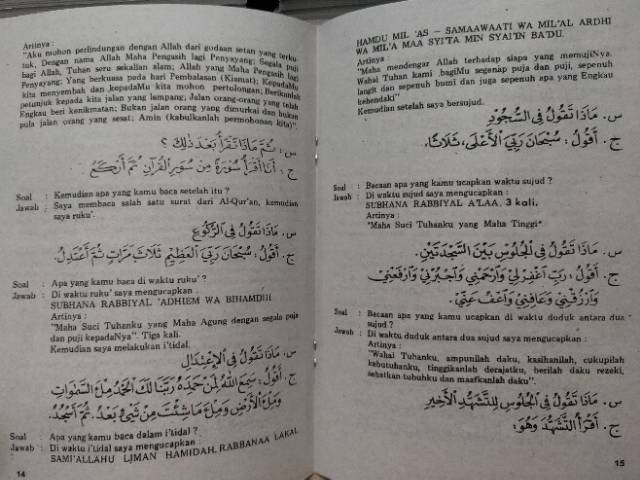 Artinya :
"Aku mohon perlindungan dengan Allah dari godaan setan yang terku-
tuk, Dengan nama Allah Maha Pengasih lagi Penyayang; Segala puji
bagi Allah, Tuhan seru sekalian alam; Allah yang Maha Pengasih lagi
Penyayang; Yang berkuasa pada hari Pembalasan (Kiamat); KepadaMu
kita menyembah dan kepadaMu kita mohon pertolongan; Berikanlah
petunjuk kepada kita jalan yang lempang; Jalan orang-orang yang telah
Engkau beri kenikmatan; Bukan jalan orang yang dimurkai dan bukan
pula jalan orang yang sesat; Amin (kabulkanlah permohonan kita)".
س . ثُمَّ مَاذَا تَقْرَأُ بَعْدَ ذٰلِكَ ؟
ج : أَنَا أَقْرَأُ سُوْرَةً مِنْ سُوَرِ الْقُرْآنِ ثُمَّ أَرْكَعُ
Soal : Kemudian apa yang kamu baca setelah itu ?
Jawab : Saya membaca salah satu surat dari Al-Qur'an, kemudian
saya ruku'.
س . مَاذَا تَقُوْلُ فِي الرُّكُوْعِ
ج . أَقُوْلُ : سُبْحَانَ رَبِّيَ الْعَظِيْمِ ثَلَاثَ مَرَّاتٍ ثُمَّ أَعْتَدِلُ.
Soal : Apa yang kamu baca di waktu ruku' ?
Jawab : Di waktu ruku' saya mengucapkan :
SUBHANA RABBIYAL 'ADHIEM WA BIHAMDIH
Artinya :
"Maha Suci Tuhanku yang Maha Agung dengan segala puja
dan puji kepadaNya" Tiga kali.
Kemudian saya melakukan i'tidal.
س . مَاذَا تَقُوْلُ فِي الْاِعْتِدَالِ
ج . أَقُوْلُ : سَمِعَ اللهُ لِمَنْ حَمِدَهُ رَبَّنَا لَكَ الْحَمْدُ مِلْءَ السَّمٰوَاتِ
وَمِلْءَ الْأَرْضِ وَمِلْءَ مَاشِئْتَ مِنْ شَيْءٍ بَعْدُ. ثُمَّ أَسْجُدُ.
Soal : Apa yang kamu baca dalam i'tidal ?
Jawab : Di waktu i'tidal saya mengucapkan :
SAMI'ALLAHU LIMAN HAMIDAH, RABBANAA LAKAL
14
HAMDU MIL 'AS – SAMAAWAATI WA MIL'AL ARDHI
WA MIL'A MAA SYI'TA MIN SYAI'IN BA'DU.
Artinya :
"Maha mendengar Allah terhadap siapa yang memujiNya.
Wahai Tuhan kami bagiMu segenap puja dan puji, sepenuh
langit dan sepenuh bumi dan juga sepenuh apa yang Engkau
kehendaki"
Kemudian setelah saya bersujud.
س . مَاذَا تَقُوْلُ فِي السُّجُوْدِ
ج . أَقُوْلُ : سُبْحَانَ رَبِّيَ الْأَعْلَى، ثَلَاثًا.
Soal : Bacaan apa yang kamu ucapkan waktu sujud ?
Jawab : Di waktu sujud saya mengucapkan :
SUBHANA RABBIYAL A'LAA, 3 kali.
Artinya :
"Maha Suci Tuhanku yang Maha Tinggi"
س . مَاذَا تَقُوْلُ فِي الْجُلُوْسِ بَيْنَ السَّجْدَتَيْنِ.
ج . أَقُوْلُ : رَبِّ اغْفِرْلِيْ وَارْحَمْنِيْ وَاجْبُرْنِيْ وَارْفَعْنِيْ
وَارْزُقْنِيْ وَعَافِنِيْ وَاعْفُ عَنِّيْ.
Soal : Bacaan apa yang kamu ucapkan di waktu duduk antara dua
sujud ?
Jawab : Di waktu duduk antara dua sujud saya mengucapkan :
Artinya :
"Wahai Tuhanku, ampunilah daku, kasihanilah, cukupilah
kebutuhanku, tinggikanlah derajatku, berilah daku rezeki,
sehatkan tubuhku dan maafkanlah daku".
س . مَاذَا تَقُوْلُ فِي الْجُلُوْسِ لِلتَّشَهُّدِ الْأَخِيْرِ
ج . أَقْرَأُ التَّشَهُّدَ وَهُوَ :
15